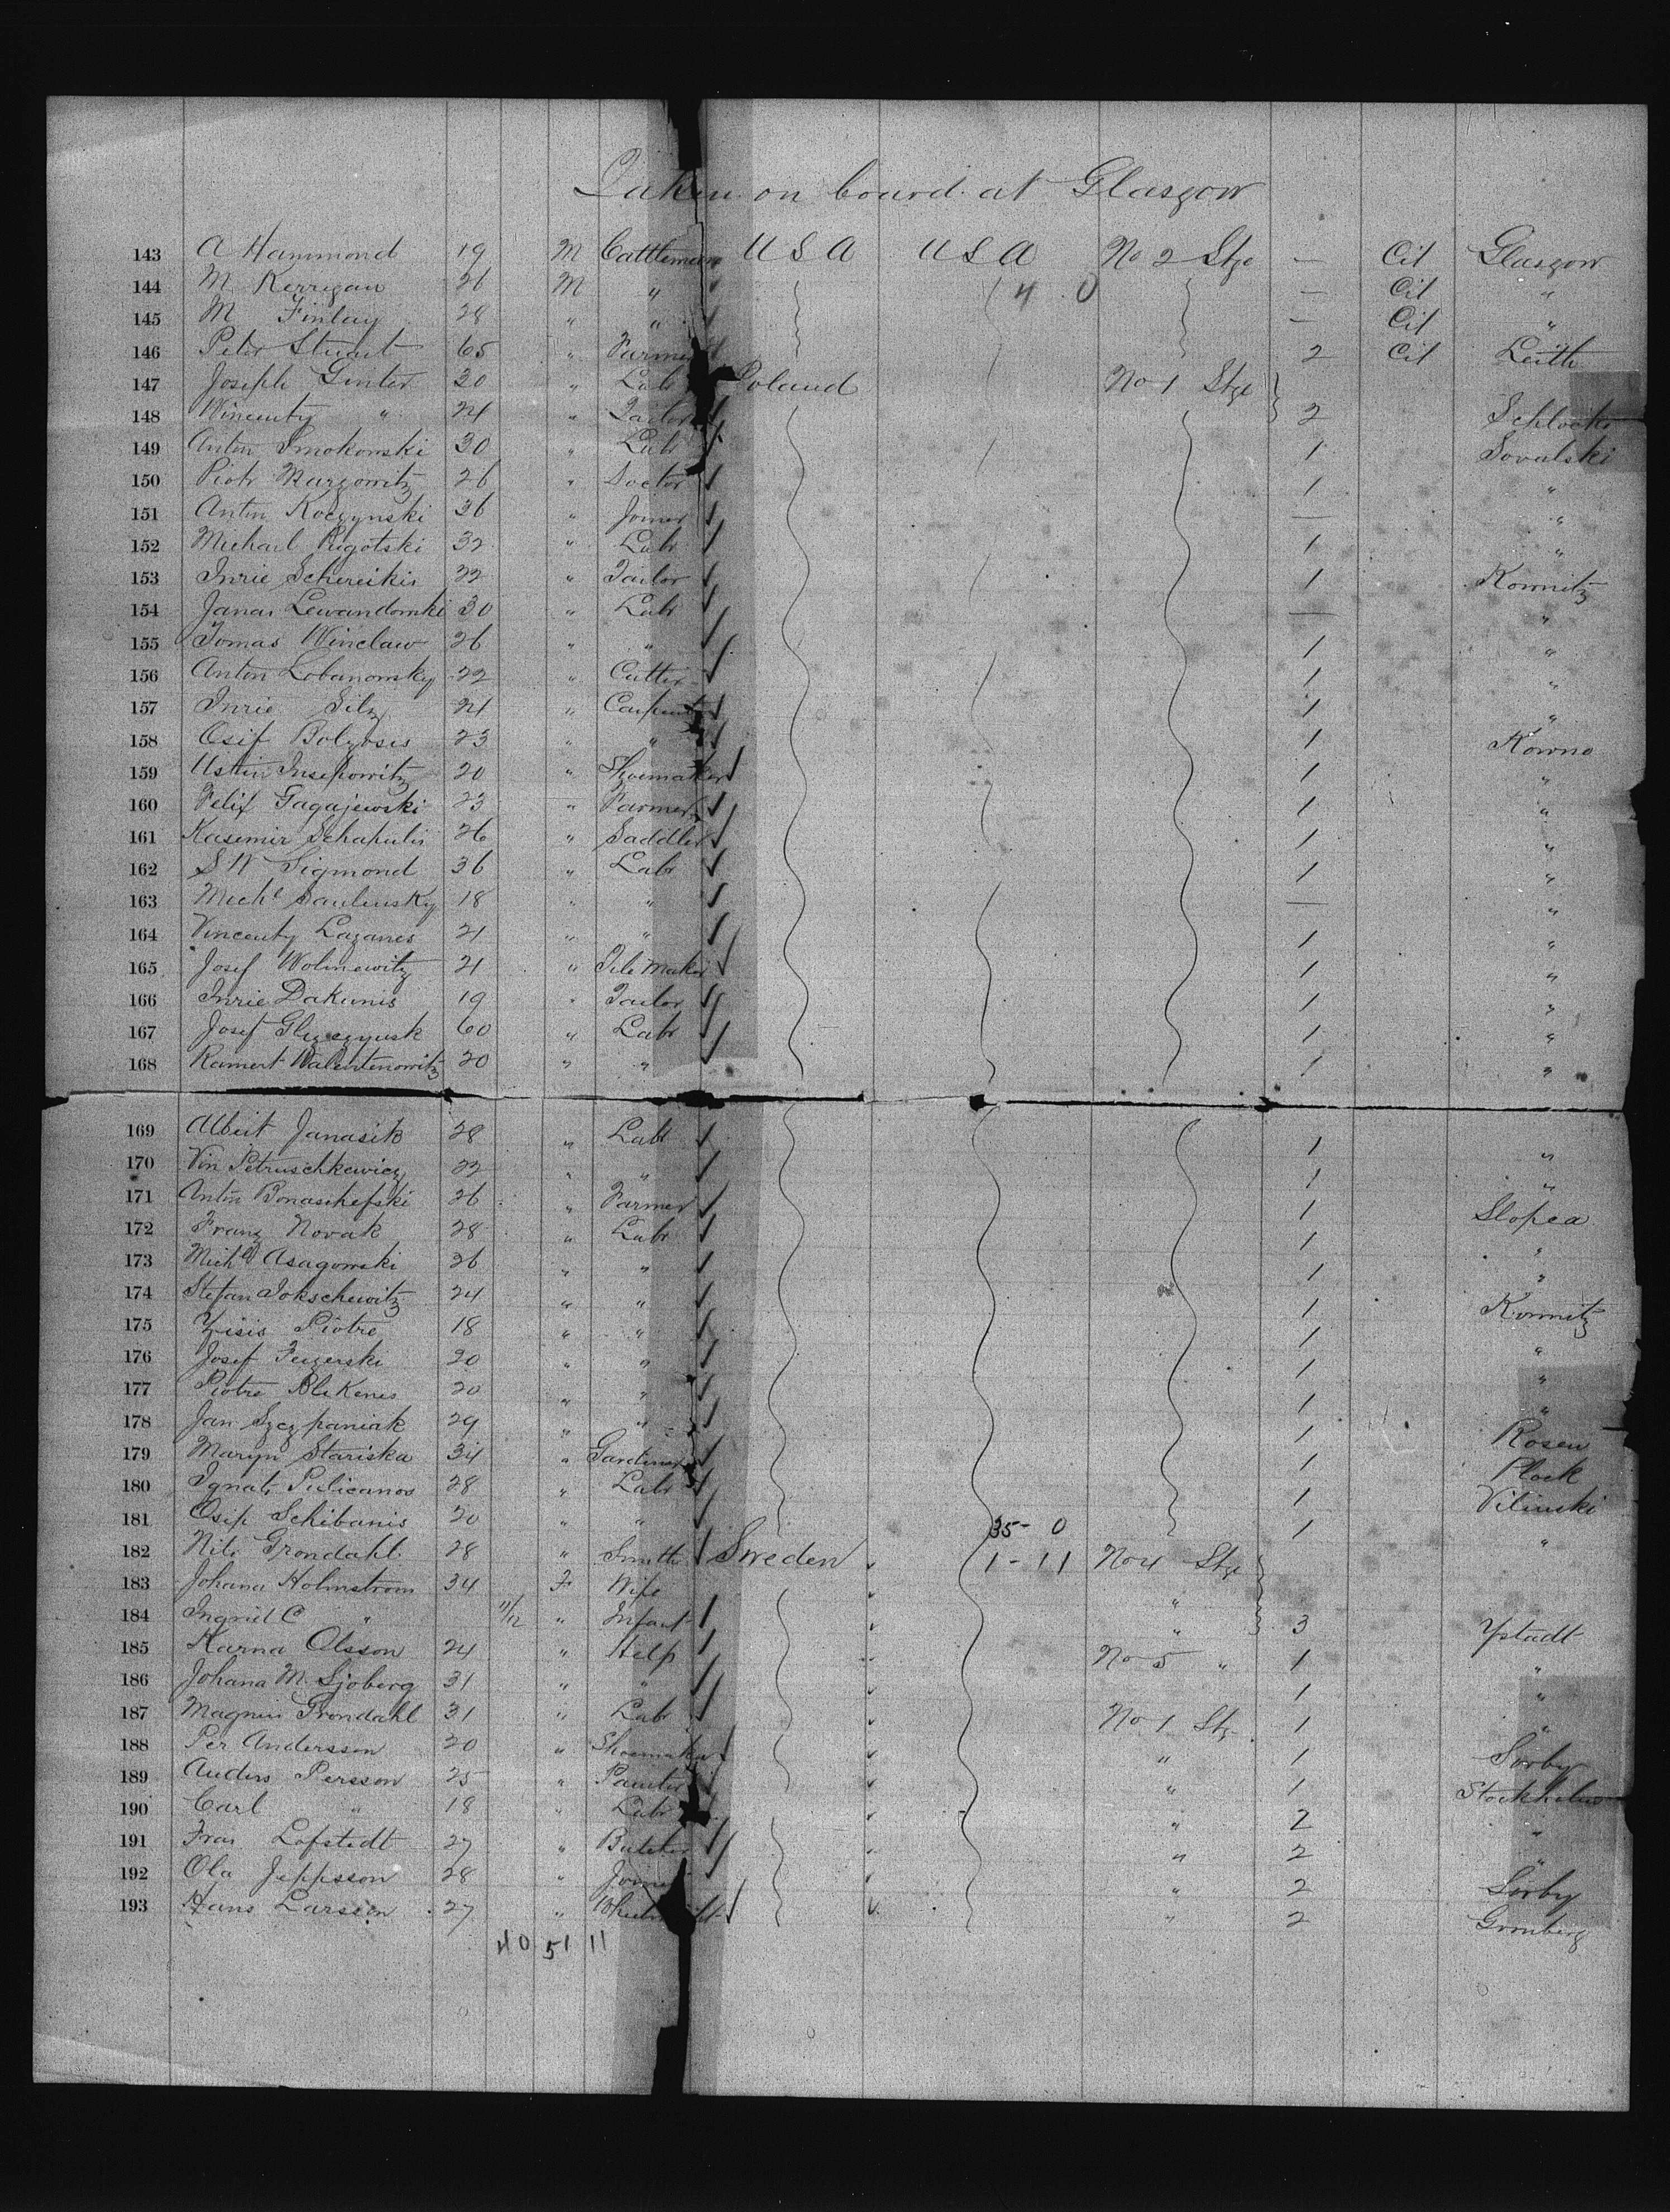 Taken on board at Glasgow
143 A Hammond 19 M Cattleman U S A U S A No 2 Stge — Cit Glasgow
144 M Kerrigan 26 M " 4 0 — Cit "
145 M Finlay 28 " " — Cit "
146 Peter Stuart 65 " Farmer 2 Cit Leith
147 Joseph Ginter 30 " Labr Poland No 1 Stge
148 Wincenty " 24 " Tailor 2
149 Anton Smokowski 30 " Labr 1 Sovalski
150 Piotr 26 " Doctor 1 "
151 Anton Koczynski 36 " Joiner — "
152 Michael Rigotski 32 " Labr 1 "
153 Inrie Schereikis 22 " Tailor 1 Kownitz
154 Janas Lewandomski 30 " Labr — "
155 Tomas Winclaw 26 " " 1 "
156 Anton Lobanomsky 22 " Cutter 1 "
157 Inrie Silz 21 " Carpenter 1 "
158 Osif Bolzosis 23 " " 1 Kowno
159 Ustin Insepowitz 20 " Shoemaker 1 "
160 Felix Gagajewski 23 " Farmer 1 "
161 Kasemir Schapulis 26 " Saddler 1 "
162 S W Sigmond 36 " Labr 1 "
163 Michl Saulinsky 18 " " — "
164 Vincenty Lazanes 21 " " 1 "
165 Josef Wolinewitz 21 " Tile Maker 1 "
166 Inrie Dakunis 19 " Tailor 1 "
167 Josef 60 " Labr 1 "
168 Ramert Walentenowitz 20 " " 1 "
169 Albert Janasik 28 " Labr 1 "
170 Vin Petruschkewicz 22 " " 1 "
171 Anton Bonaschefski 26 " Farmer 1 Slopea
172 Franz Novak 28 " Labr 1 "
173 Michl Asagowski 26 " " 1 "
174 Stefan Jokschewitz 24 " " 1 Kownitz
175 Zisis Piotre 18 " " 1 "
176 Josef Feizerski 20 " " 1 "
177 Piotre Blekenes 20 " " 1 "
178 Jan Szczpaniak 29 " " 1 Rosen
179 Maryn Stariska 34 " Gardiner 1 Plock
180 Ignatz Pulicanos 28 " Labr 1 Vilinski
181 Osip Schibanis 20 " " 35-0 1 "
182 Nils Grondahl 28 " Smith Sweden " 1-11 No 4 Stge
183 Johana Holmstrom 34 F Wife " "
184 Ingrid C " 11/12 " Infant " " 3 Ystadt
185 Karna Olsson 24 " Help " No 5 " 1 "
186 Johana M Sjoberg 31 " " " 1 "
187 Magnus Grondahl 31 " Labr " No 1 Stge 1 "
188 Per Andersson 20 " Shoemaker " " 1 Sorby
189 Anders Persson 25 " Painter " " 1 Stockholm
190 Carl " 18 " Labr " " 2 "
191 Fras Lofstedt 27 " Butcher " " 2 "
192 Ola Jeppsson 28 " Joiner " " 2 Sorby
193 Hans Larsson 27 " Wheelwright " " 2 Gromberg
40 51 11